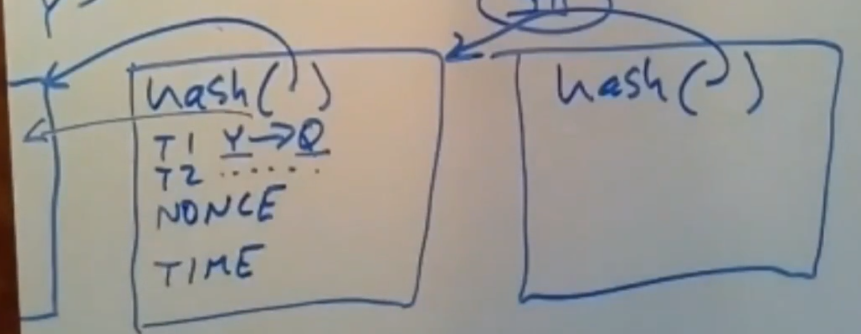 Y
hash( )
T1 Y→Q
T2 ......
NONCE
TIME
hash( )